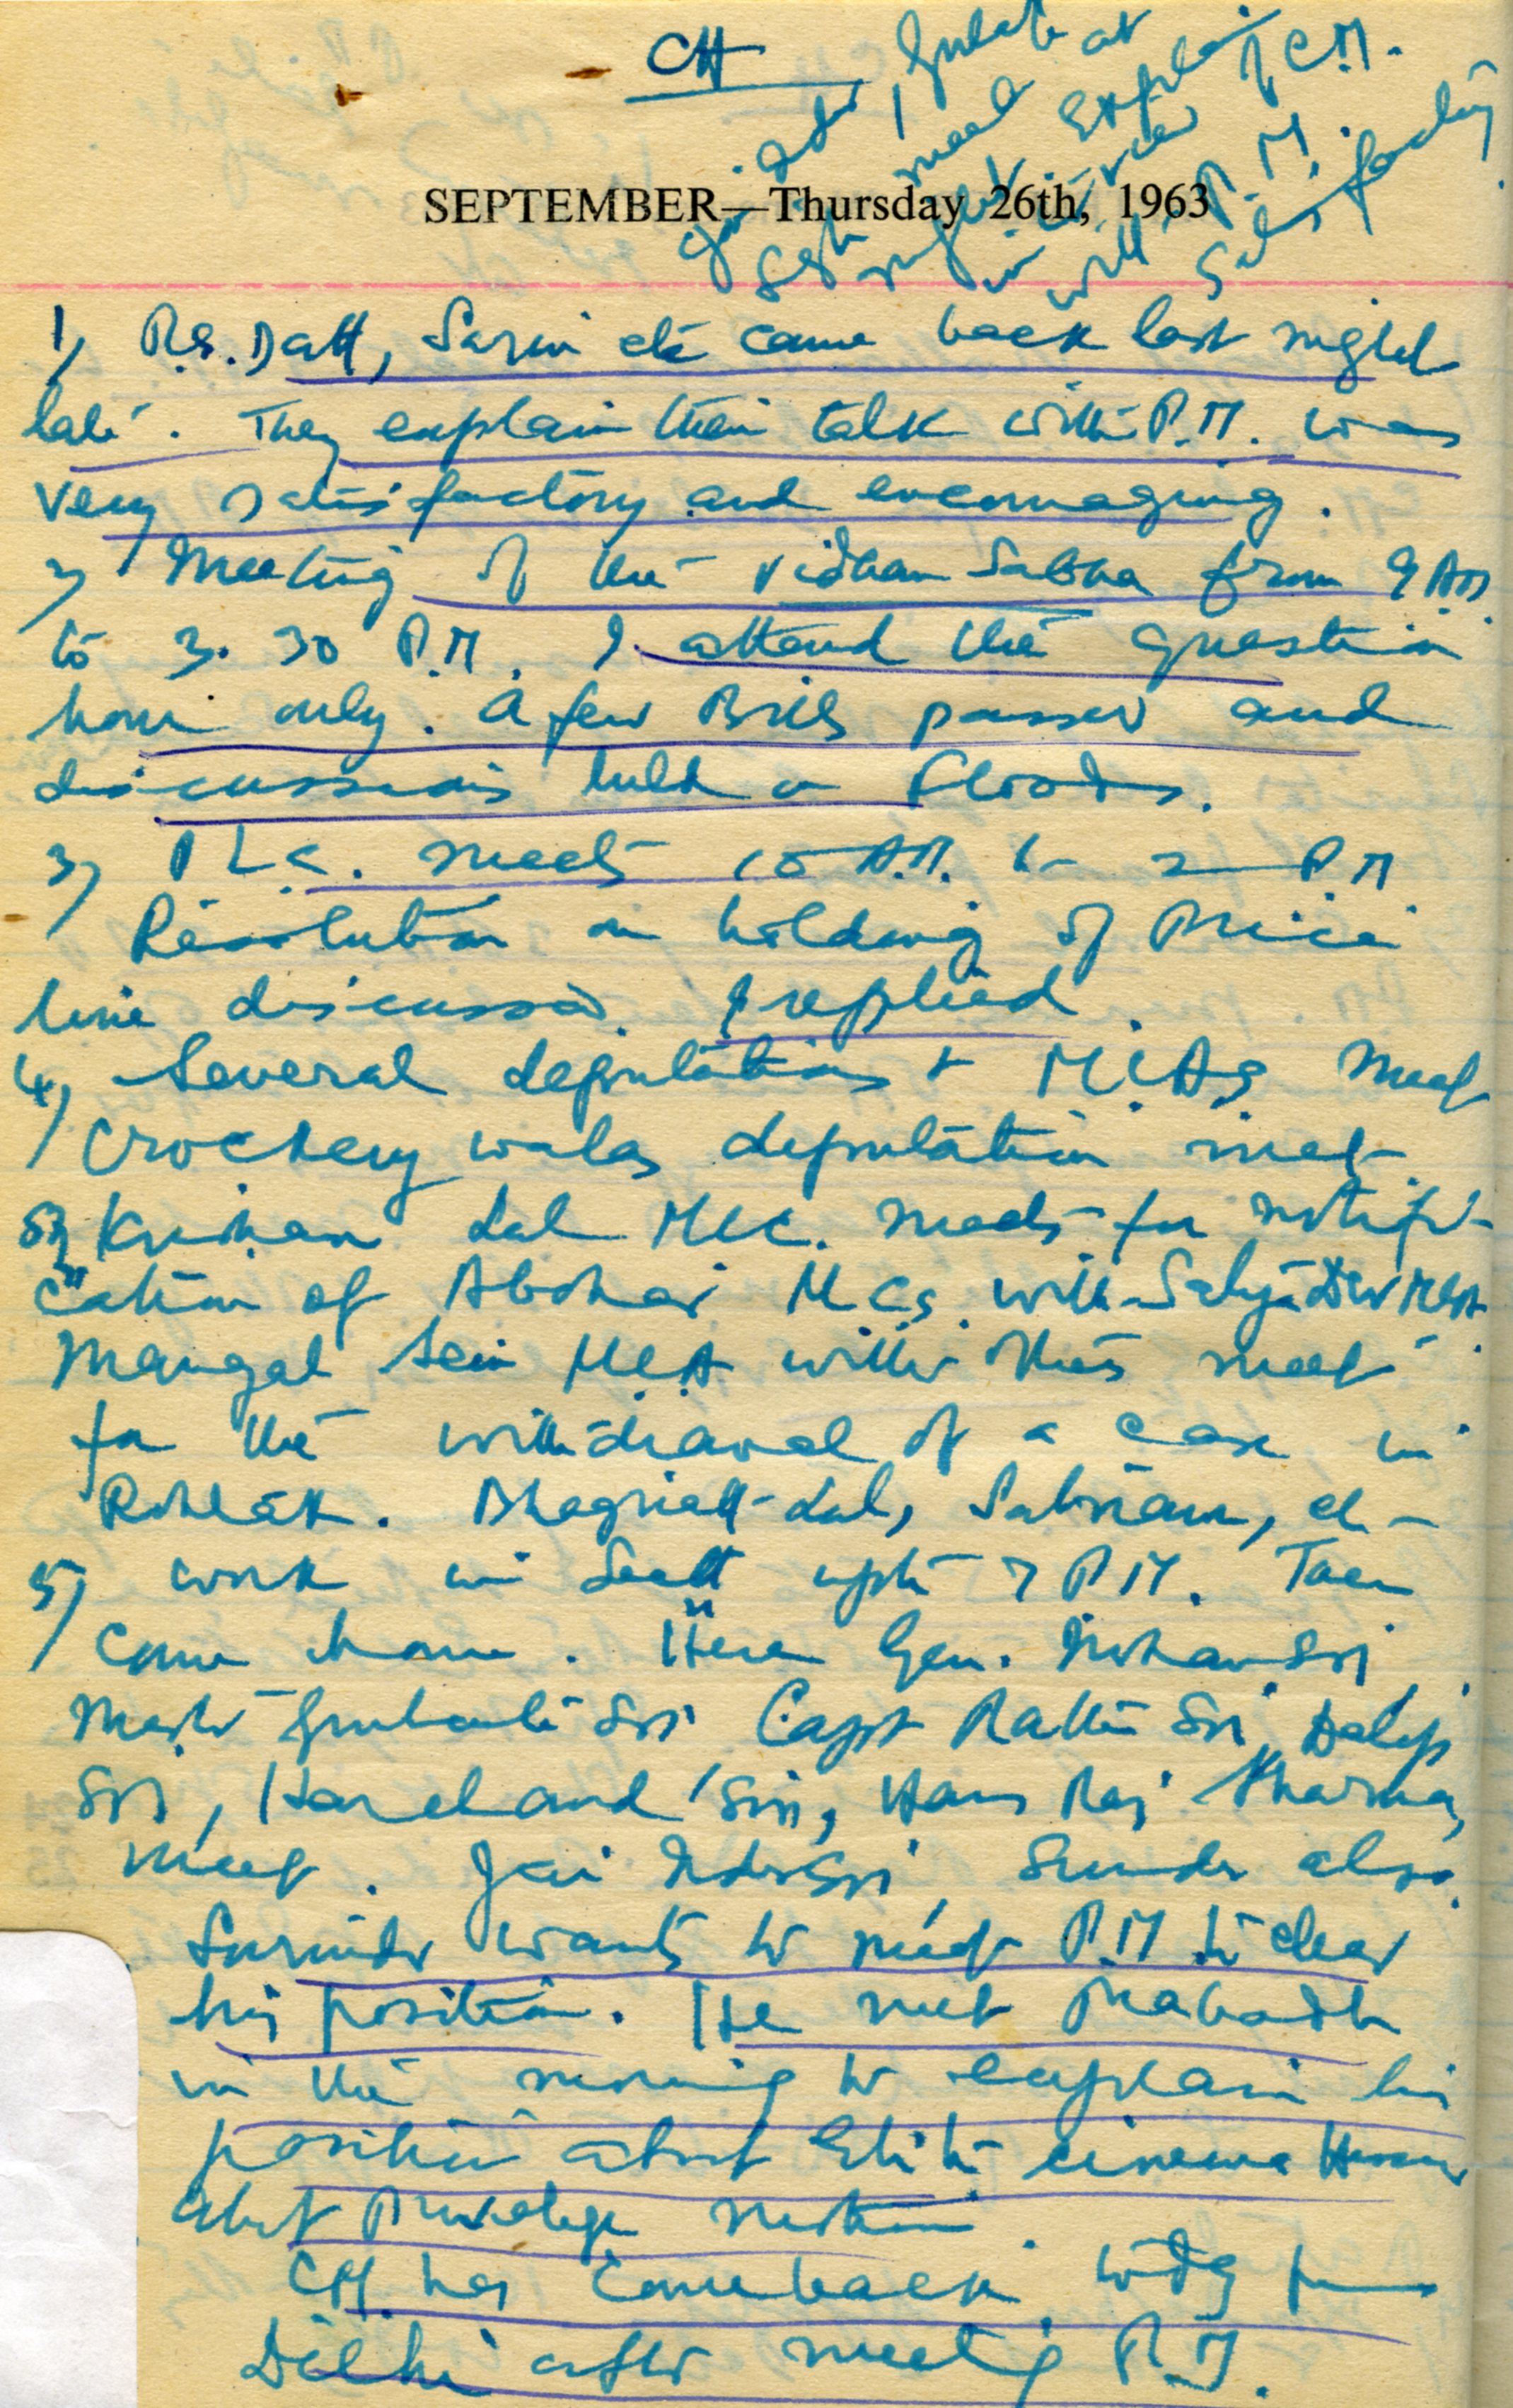 CH
Gulab at
meet explain
view of C.M.
with P.M.
Satisfactory
SEPTEMBER—Thursday 26th, 1963
1) P.S. Datt, Sarin etc came back last night
late. They explain their talk with P.M. was
very satisfactory and encouraging.
2) Meeting of the Vidhan Sabha from 9 AM
to 3.30 P.M. I attend the question
hour only. A few Bills passed and
discussions held on floods.
3) P L C. meets 10 A.M. to 2 P.M
Resolution on holding of Price
line discussed. I replied.
4) Several deputations + M.L.As meet
Crockery walas deputation meet.
5) Krishan Lal MLC. meets for notifi-
cation of Abohar M Cs with Satya Dev MLA.
Mangal Sein M.L.A with this meet
for the withdrawal of a case in
Rohtak. Bhagwat Lal, Satnam, etc
5) work in Sectt upto 7 P.M. Then
come home. Here Gen. Mohan Sri
Capt Rattan Sri, Dalip
Sri, Harchand Sri, Hans Raj Sharma,
meet. Jai Inder Sri, Surinder also.
Surinder wants to meet P.M to clear
his position. He met Prabodh
in the morning to explain his
position about cinema House
about Privilege motion.
CM has come back today from
Delhi after meeting P.M.